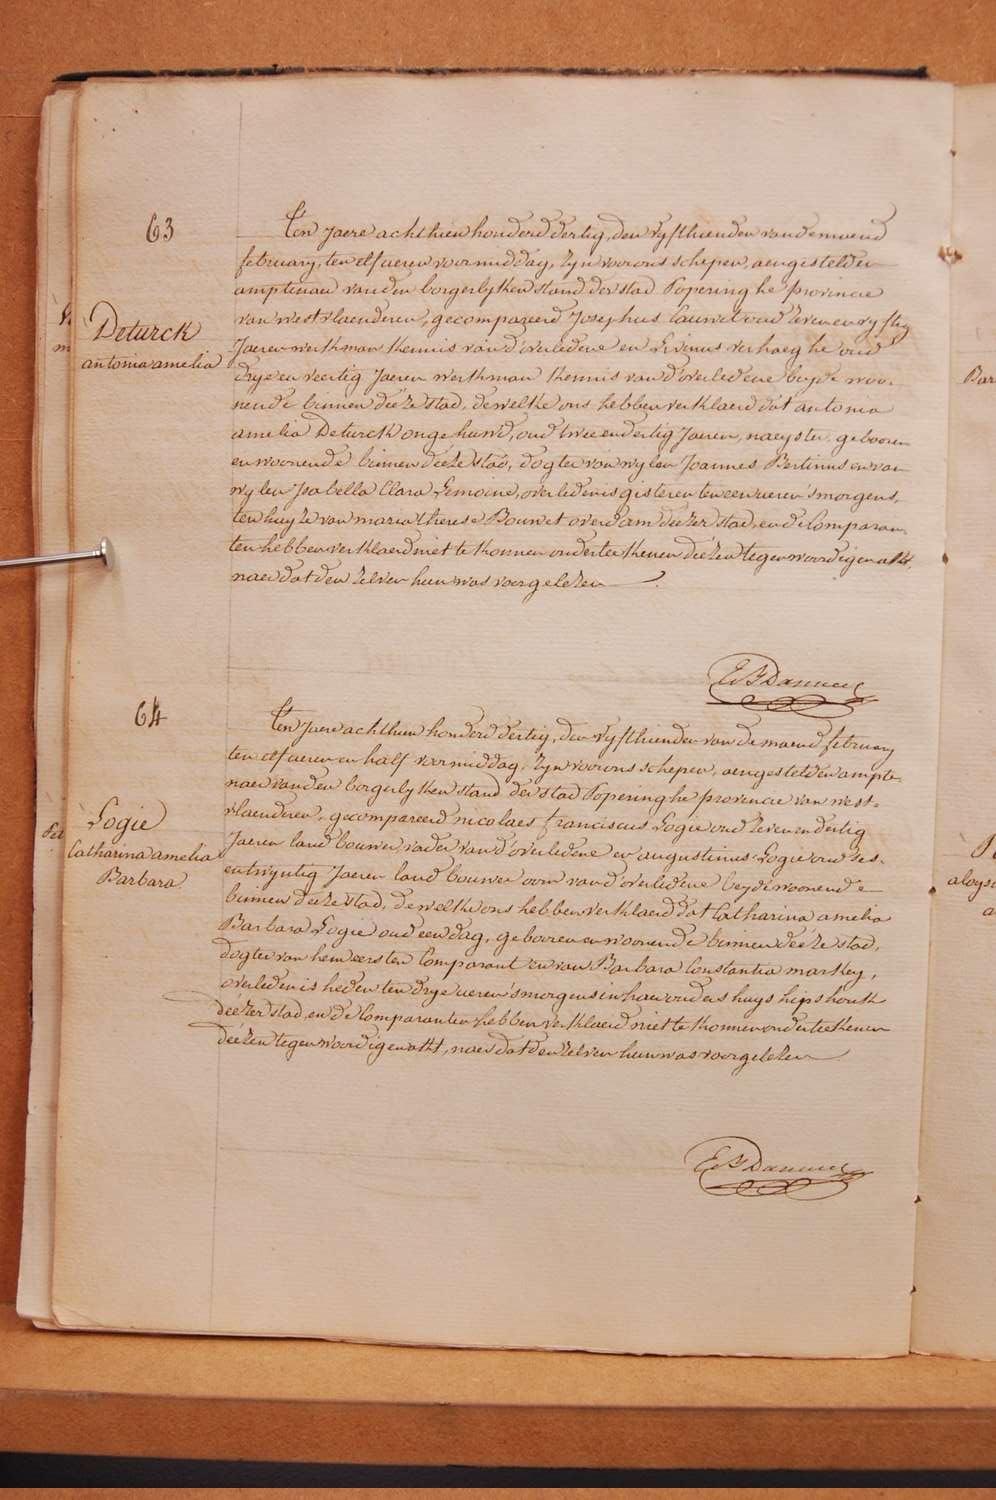 63
Deturck
antonia amelia
Ten Jaere achthien honderd dertig, den vyfthienden van de maend
february, ten elf ueren voormiddag, Zyn voor ons schepen, aengestelden
amptenaer van den borgerlyken stand der stad Poperinghe provincie
van westvlaenderen, gecompareerd Josephus Cauwet oud Zeven en vyftig
Jaeren werkman kennis van d'overledene en Livinus verhaeghe oud
drye en veertig Jaeren werkman kennis van d'overledene beyde woo-
nende binnen deéze stad, de welke ons hebben verklaerd dat antonia
amelia Deturck ongehuwd, oud twee en dertig Jaeren, naeyster, gebooren
en woonende binnen deéze stad, dogter van wylen Joannes Bertinus en van
wylen Isabella Clara Lemoine, overleden is gisteren ten een ueren 's morgens,
ten huyze van maria therese Bouwet overdam deézer stad, en de Comparan-
ten hebben verklaerd niet te konnen onderteekenen deézen tegenwoordigen akt,
naer dat den zelven hun was voorgelezen
64
Logie
Catharina amelia
Barbara
Ten Jaere achthien honderd dertig, den vyfthienden van de maend february
ten elf ueren en half vormiddag, Zyn voor ons schepen, aengestelden ampte-
naer van den borgerlyken stand der stad Poperinghe provincie van west-
vlaenderen, gecompareerd nicolaes franciscus Logie oud Zeven en dertig
Jaeren landbouwer vader van d'overledene en augustinus Logie oud Zes-
entwyntig Jaeren landbouwer oom van d'overledene beyde woonende
binnen deéze stad, de welke ons hebben verklaerd dat Catharina amelia
Barbara Logie oud een dag, gebooren en woonende binnen deéze stad,
dogter van hem eersten Comparant en van Barbara Constantia markey,
overleden is heden ten drye ueren 's morgens in haer ouders huys hipshoek
deézer stad, en de Comparanten hebben verklaerd niet te konnen onderteekenen
deézen tegenwoordigen akt, naer dat den zelven hun was voorgelezen